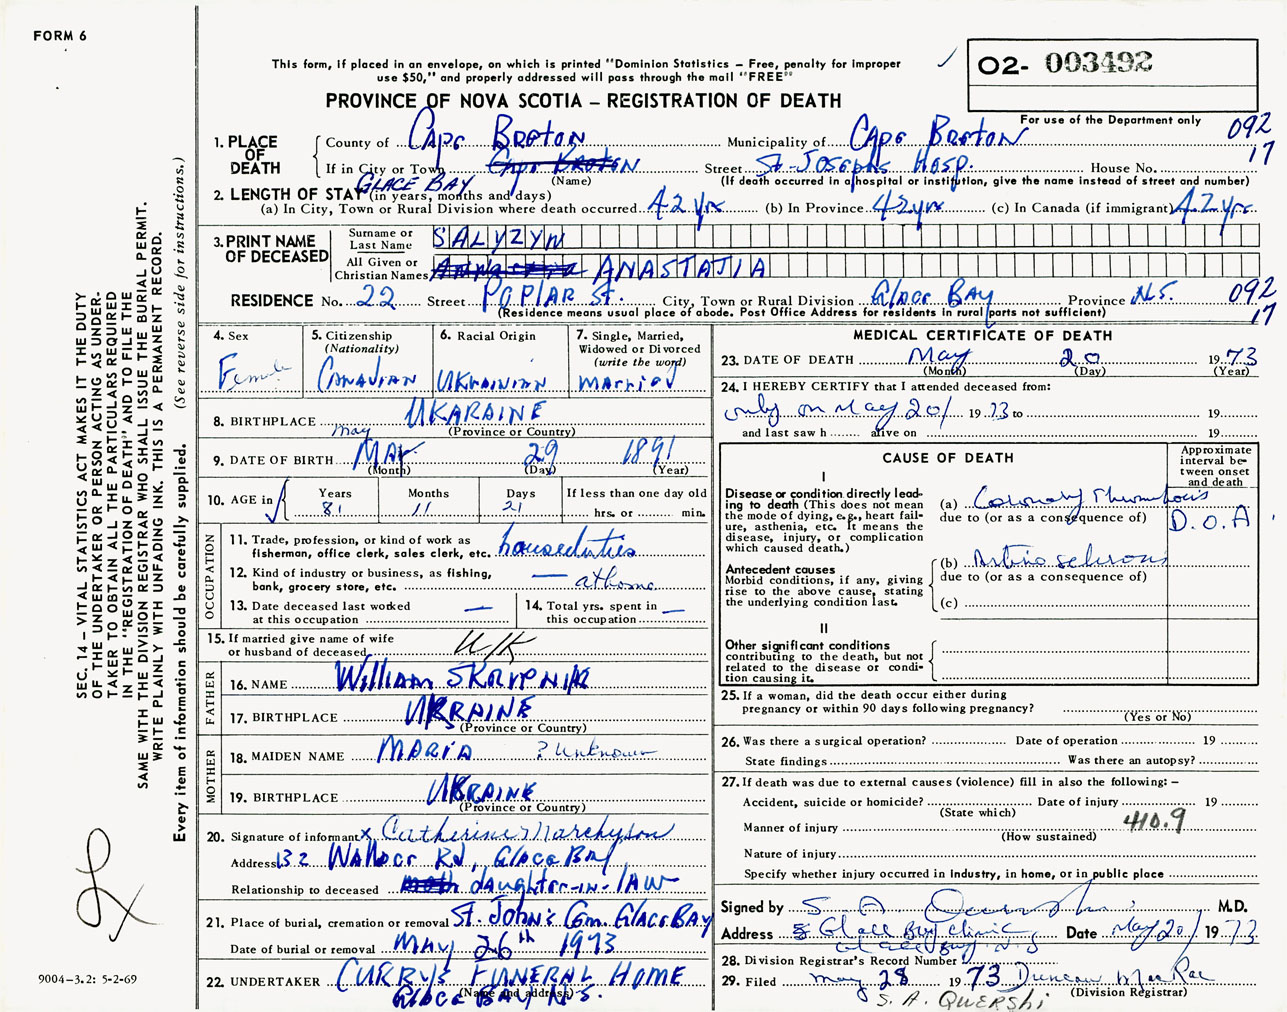 FORM 6
This form, if placed in an envelope, on which is printed "Dominion Statistics – Free, penalty for improper
use $50," and properly addressed will pass through the mail "FREE"
O2- 003492
PROVINCE OF NOVA SCOTIA – REGISTRATION OF DEATH
For use of the Department only
092
17
1. PLACE OF DEATH
County of Cape Breton Municipality of Cape Breton
If in City or Town Glace Bay (Name) Street St. Josephs Hosp. House No.
(If death occurred in a hospital or institution, give the name instead of street and number)
2. LENGTH OF STAY (in years, months and days)
(a) In City, Town or Rural Division where death occurred 42 yrs (b) In Province 42 yrs (c) In Canada (if immigrant) 42 yrs
3. PRINT NAME OF DECEASED
Surname or Last Name SALYZYN
All Given or Christian Names ANASTATJIA
RESIDENCE No. 22 Street Poplar St. City, Town or Rural Division Glace Bay Province N.S.
092
17
(Residence means usual place of abode. Post Office Address for residents in rural parts not sufficient)
4. Sex
Female
5. Citizenship
(Nationality)
Canadian
6. Racial Origin
Ukrainian
7. Single, Married,
Widowed or Divorced
(write the word)
Married
8. BIRTHPLACE UKARAINE
(Province or Country)
9. DATE OF BIRTH May May 29 1891
(Month) (Day) (Year)
10. AGE in Years 81 Months 11 Days 21 If less than one day old
hrs. or min.
OCCUPATION
11. Trade, profession, or kind of work as
fisherman, office clerk, sales clerk, etc. houseduties
12. Kind of industry or business, as fishing,
bank, grocery store, etc. — at home
13. Date deceased last worked
at this occupation —
14. Total yrs. spent in
this occupation —
15. If married give name of wife
or husband of deceased U/K
FATHER
16. NAME William SKRYPNIK
17. BIRTHPLACE UKRAINE
(Province or Country)
MOTHER
18. MAIDEN NAME MARIA ? Unknown
19. BIRTHPLACE UKRAINE
(Province or Country)
20. Signature of informant x Catherine
Address 132 Wallace Rd, Glace Bay
Relationship to deceased daughter-in-law
21. Place of burial, cremation or removal St. John's Cem. Glace Bay
Date of burial or removal May 26th 1973
22. UNDERTAKER Curry's Funeral Home
Glace Bay N.S.
(Name and address)
MEDICAL CERTIFICATE OF DEATH
23. DATE OF DEATH May 20 1973
(Month) (Day) (Year)
24. I HEREBY CERTIFY that I attended deceased from:
only on May 20/ 1973 to 19
and last saw h alive on 19
CAUSE OF DEATH
Approximate
interval be-
tween onset
and death
I
Disease or condition directly lead-
ing to death (This does not
mean the mode of dying, e.g., heart fail-
ure, asthenia, etc. It means the
disease, injury, or complication
which caused death.)
(a) Coronary Thrombosis
due to (or as a consequence of)
D.O.A
Antecedent causes
Morbid conditions, if any, giving
rise to the above cause, stating
the underlying condition last.
(b)
due to (or as a consequence of)
(c)
II
Other significant conditions
contributing to the death, but not
related to the disease or condi-
tion causing it.
25. If a woman, did the death occur either during
pregnancy or within 90 days following pregnancy?
(Yes or No)
26. Was there a surgical operation? Date of operation 19
State findings Was there an autopsy?
27. If death was due to external causes (violence) fill in also the following: –
Accident, suicide or homicide? Date of injury 19
(State which)
Manner of injury 410.9
(How sustained)
Nature of injury
Specify whether injury occurred in industry, in home, or in public place
Signed by S. A M.D.
Address Glace Bay Clinic Date May 20/ 1973
Glace Bay N S
28. Division Registrar's Record Number
29. Filed May 28 1973 Duncan MacRae
(Division Registrar)
S. A. QUERSHI
SEC. 14 – VITAL STATISTICS ACT MAKES IT THE DUTY
OF THE UNDERTAKER OR PERSON ACTING AS UNDER-
TAKER TO OBTAIN ALL THE PARTICULARS REQUIRED
IN THE "REGISTRATION OF DEATH" AND TO FILE THE
SAME WITH THE DIVISION REGISTRAR WHO SHALL ISSUE THE BURIAL PERMIT.
WRITE PLAINLY WITH UNFADING INK. THIS IS A PERMANENT RECORD.
Every item of information should be carefully supplied. (See reverse side for instructions.)
9004-3.2: 5-2-69